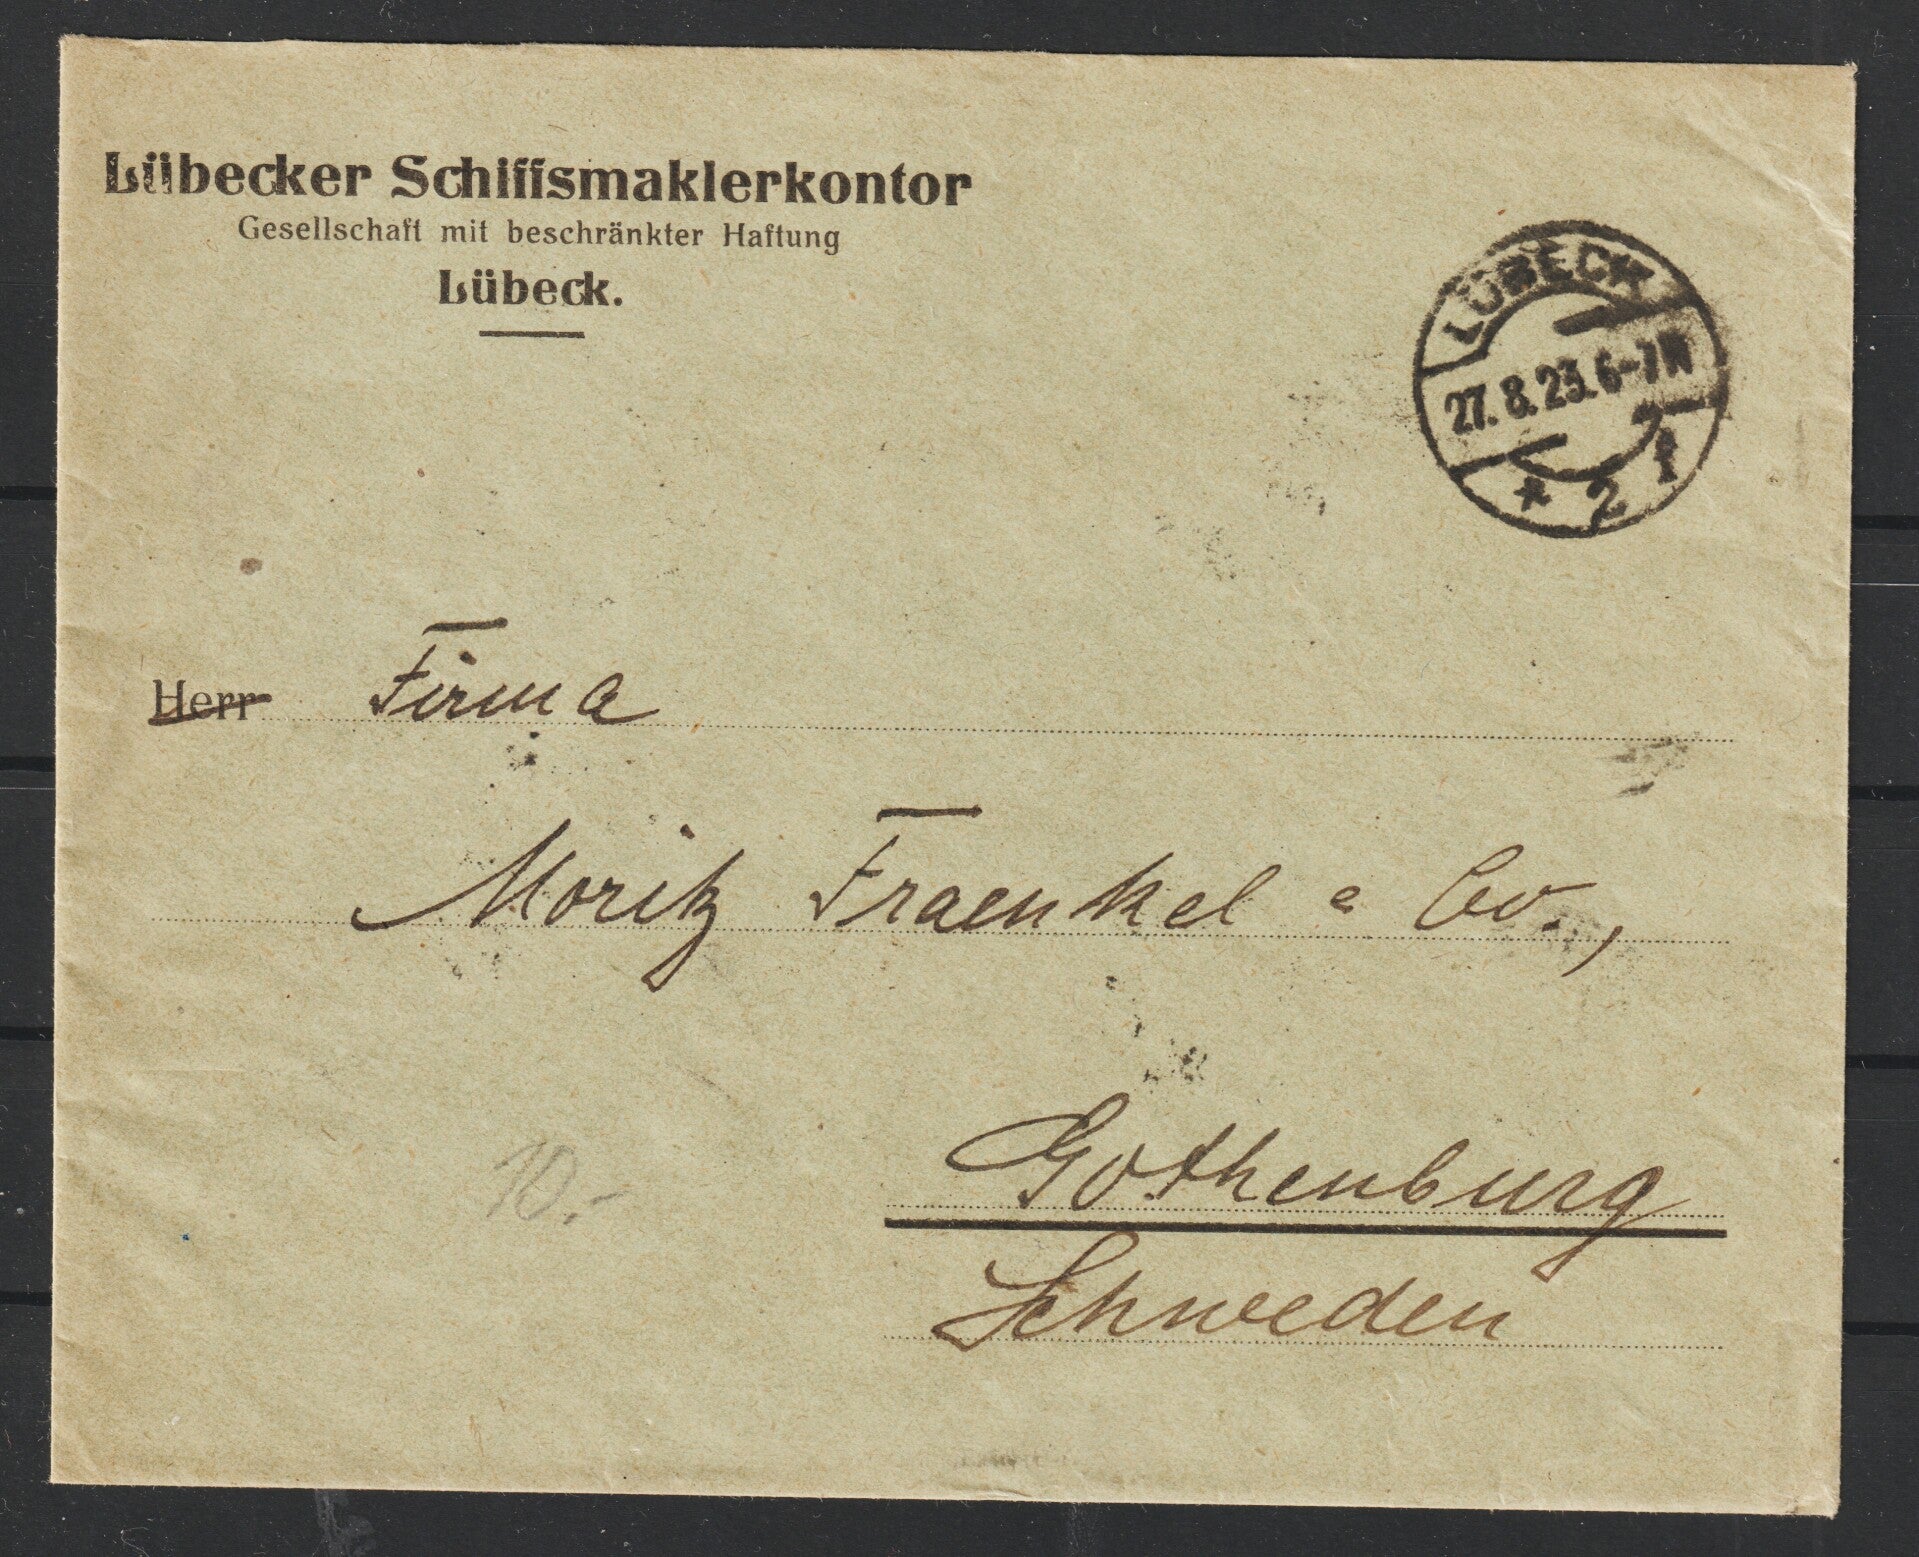 Lübecker Schiffsmaklerkontor
Gesellschaft mit beschränkter Haftung
Lübeck.
LÜBECK
27.8.23.6-7N
* 2 f
Herr Firma
Moritz Fraenkel & Co.,
Gothenburg
Schweden
10.-